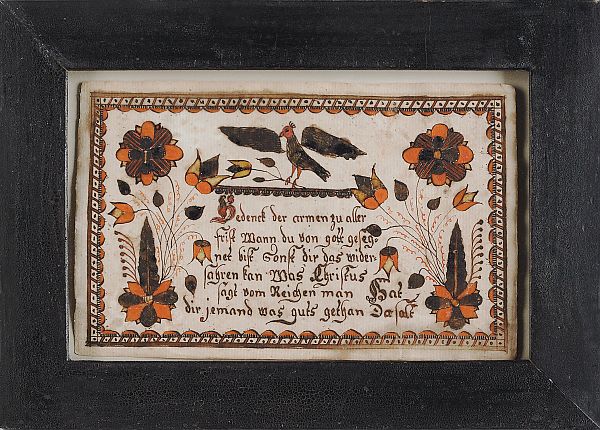 Bedenck der armen zu aller
frist Wann du von gott geseg-
net bist Sonst dir das wider-
fahren kan Was Christus
sagt vom Reichen man Hat
dir jemand was guts gethan Da solt